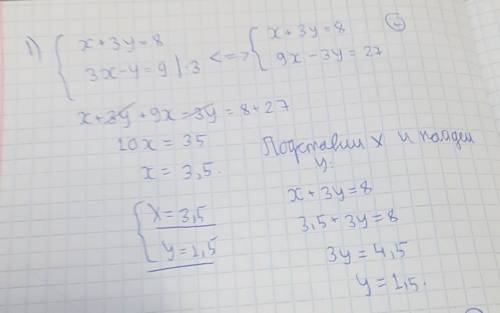 1) { x+3y=8
3x-y=9 |·3 <=> { x+3y=8
9x-3y=27
x+3y+9x-3y=8+27
10x=35
x=3,5.
{ x=3,5
y=1,5
Подставим x и найдем
y:
x+3y=8
3,5+3y=8
3y=4,5
y=1,5.